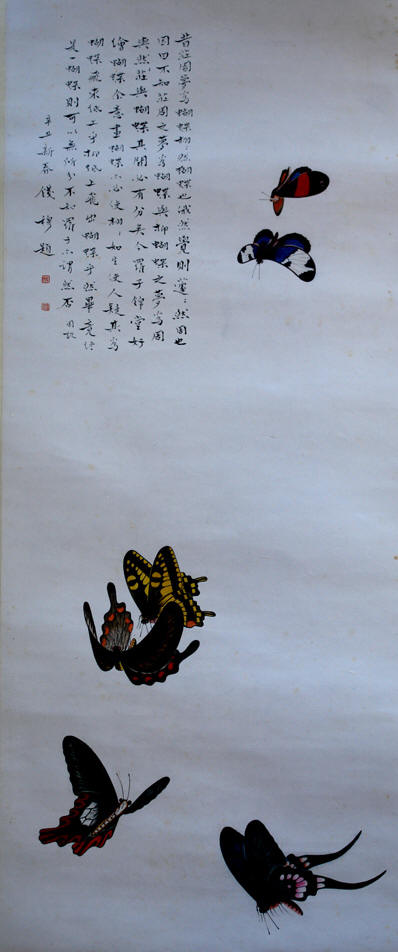 昔莊周夢為蝴蝶栩〻然蝴蝶也俄然覺則蘧〻然周也
因曰不知莊周之夢為蝴蝶與抑蝴蝶之夢為周
與然莊與蝴蝶其間必有分矣今羅子錦堂好
繪蝴蝶余意畫蝴蝶亦必使栩〻如生使人疑其為
蝴蝶飛來紙上乎抑紙上飛出蝴蝶乎然畢竟
是一蝴蝶則可以無所分不知羅子亦謂然否
辛丑新春錢穆題